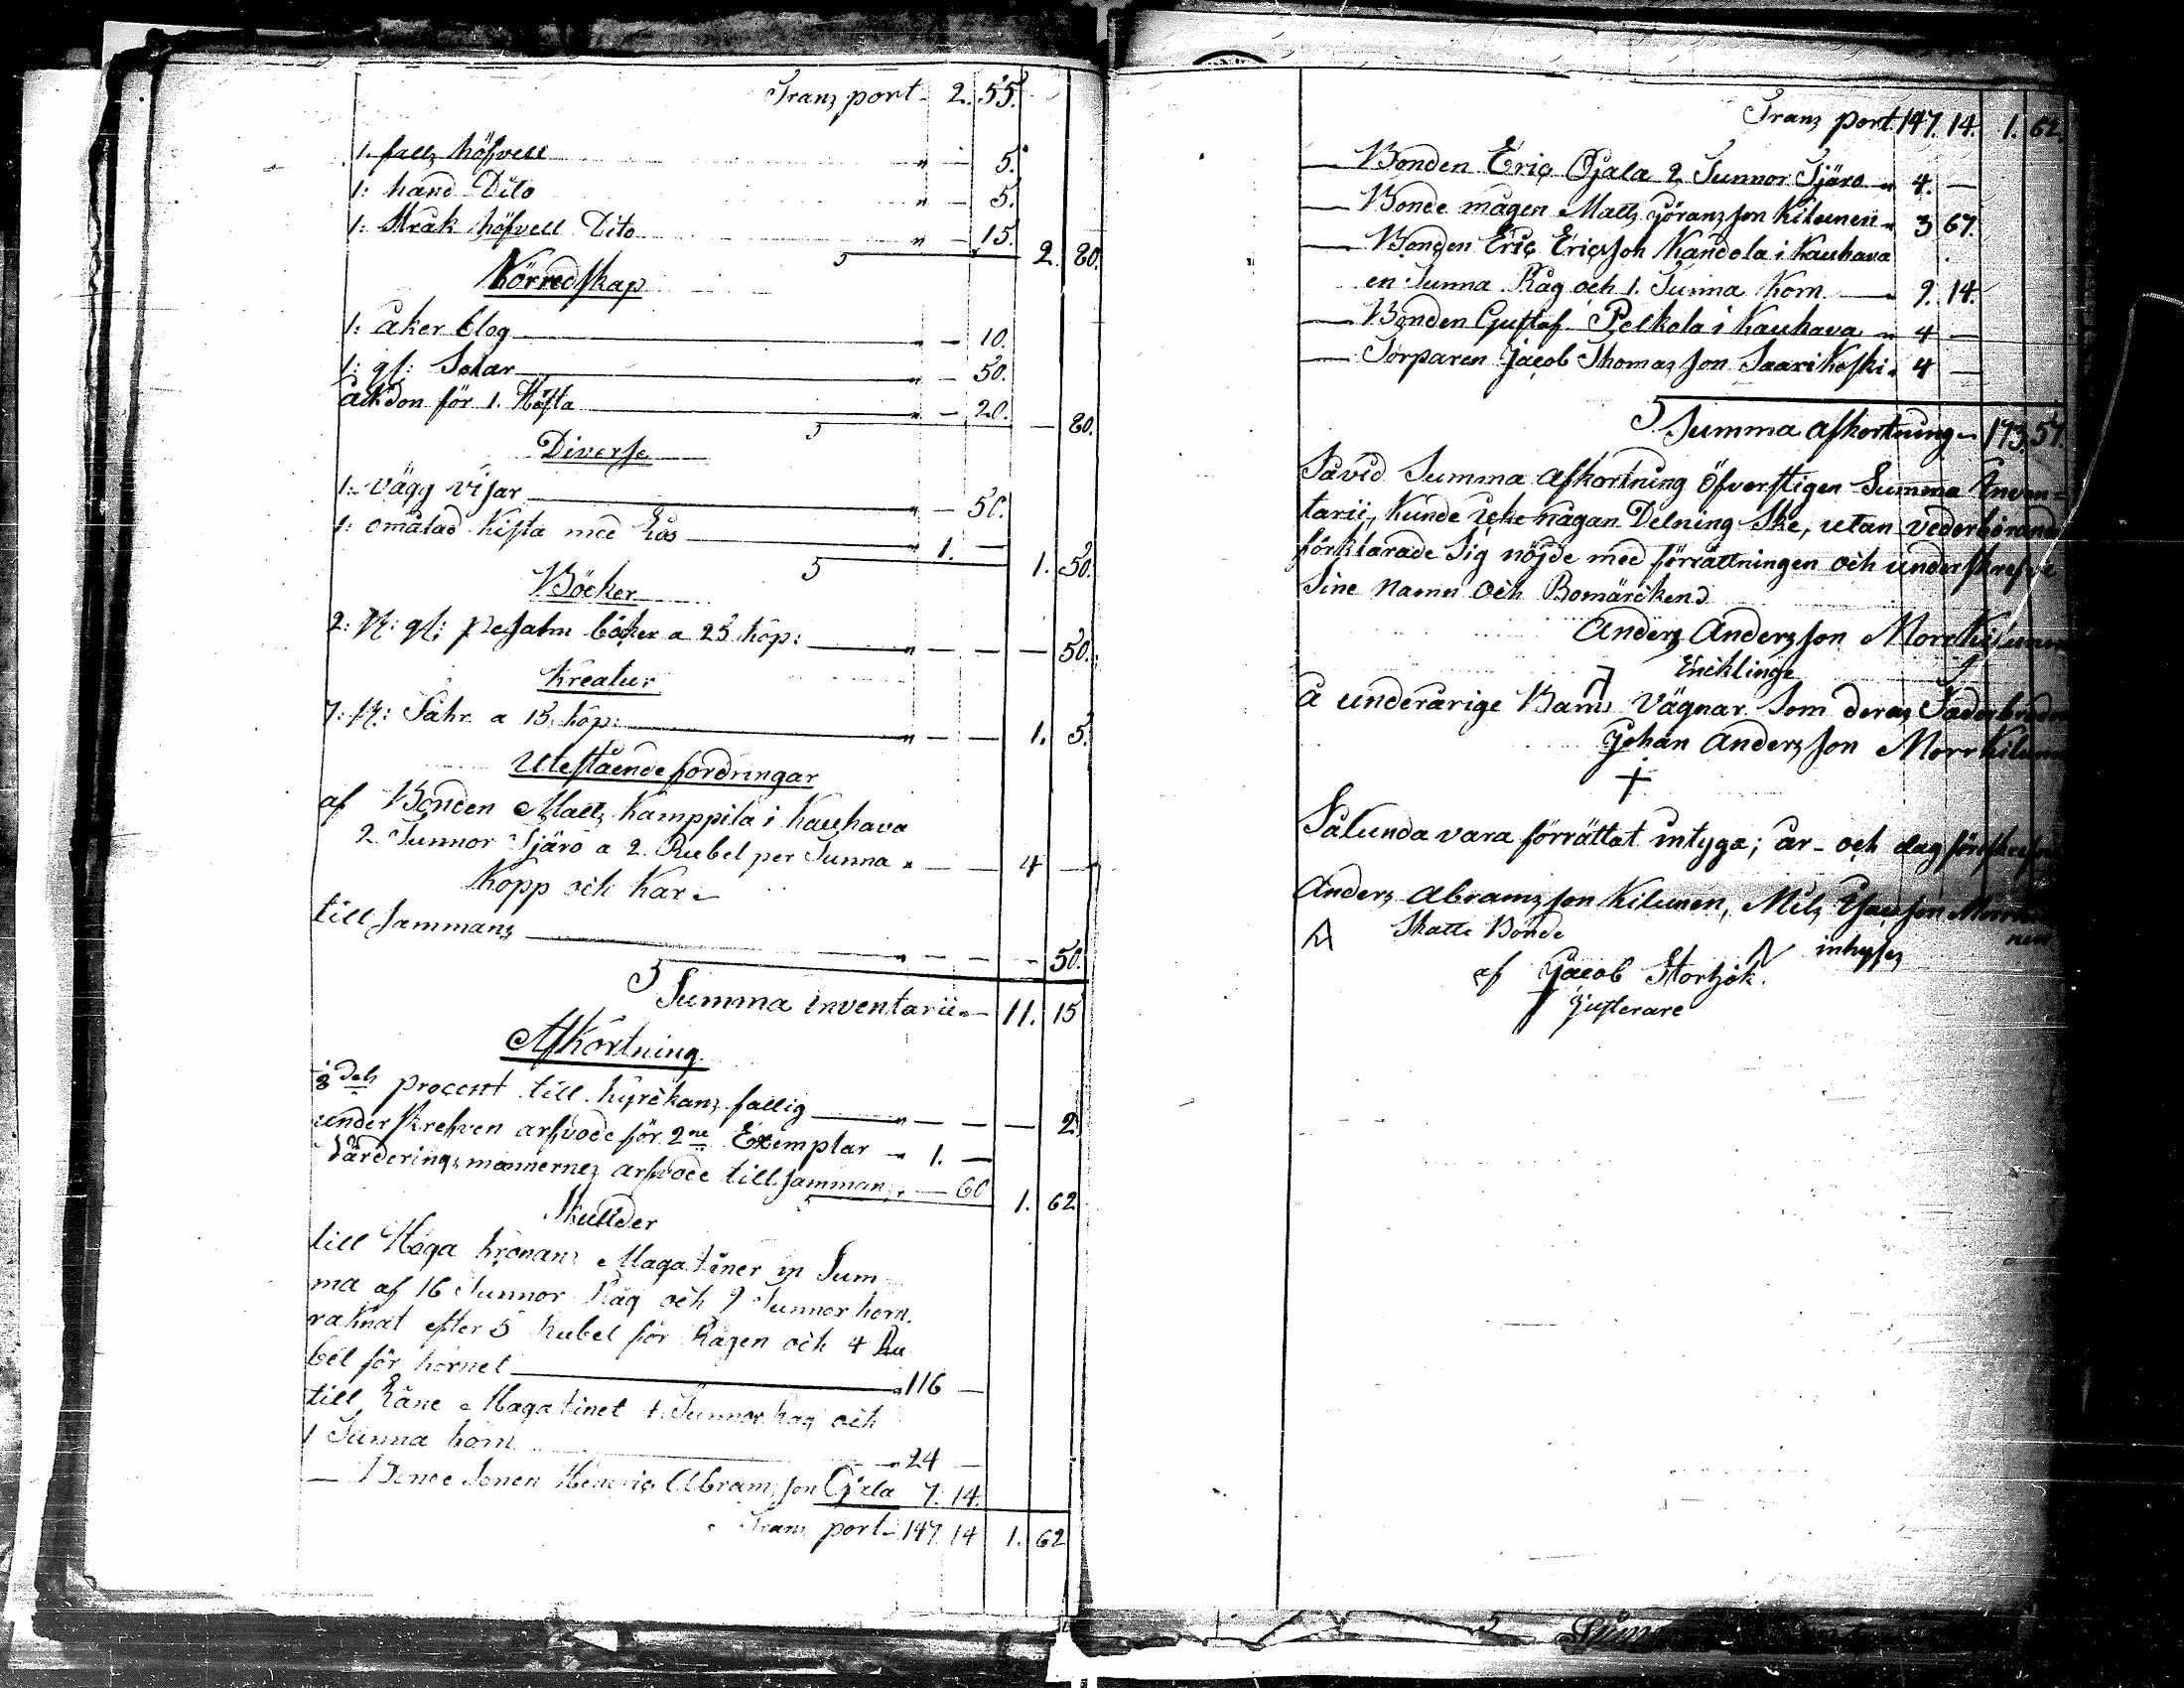 Transport 2. 55.
1. falls höfvell " — 5.
1: hand Dito " — 5.
1: Stråk höfvell Dito " — 15. 2. 80.
Körredskap
1: åker blog " — 10.
1: gl: Selar " — 50.
åkdon för 1. Häst " — 20. — 80.
Diverse
1: Vägg visar " — 50.
1: omålad Kista med Lås " 1. — 1. 50.
Böcker
2: st: gl: psalm böker a 25 kop: " — — — 50.
Kreatur
7: st: Fåhr a 15 kop: " — — 1. 5.
Utestående fordringar
af Bonden Matts Kamppila i Kauhava
2 Tunnor Tjäro a 2. Rubel per Tunna " — — 4 —
Kopp och Kar
till sammans " — — — 50.
Summa inventarii " — 11. 15
Afkortning
1/8 dels procent till kyrckans fattig " — — — 2.
underskrefven arfvode för 2ne Exemplar " 1. —
Värderingsmännernes arfvode till samman " — 60 1. 62
Skullder
till Höga kronans Magatiner in Sum-
ma af 16 Tunnor Råg och 9 Tunnor korn.
räknat efter 5 Rubel för Rågen och 4 Ru
bel för kornet " 116 —
till Låne Magatinet 4 Tunnor Råg och
1 Tunna korn " 24 —
— Bonde Sonen Henric Abramsson Ojala 7. 14.
Transport 147. 14 1. 62
Transport 147. 14. 1. 62.
— Bonden Eric Ojala 2 Tunnor Tjäro " 4. —
— Bonde mågen Matts Göransson Kilunen " 3 67.
— Bonden Eric Ericsson Kandola i Kauhava
en Tunna Råg och 1. Tunna Korn " 9. 14.
— Bonden Gustaf Pelkola i Kauhava " 4 —
— Torparen Jacob Thomasson Saarikoski " 4 —
Summa afkortning " 173. 57.
Såvid Summa afkortning Öfverstigen Summa Inven-
tarii, kunde icke någan Delning ske, utan vederbörande
förklarade sig nöjde med förrättningen och underskrefve
sine namn och Bomärckend
Anders Andersson Morr Kilunen
Encklinge
å underårige Barns vägnar som deras
Johan Andersson Morr Kilunen
Sålunda vara förrättat intyga; år- och dag
Anders Abramsson Kilunen, Mils
Skatte Bonde inhyses
af Jacob Stortjok.
Justerare